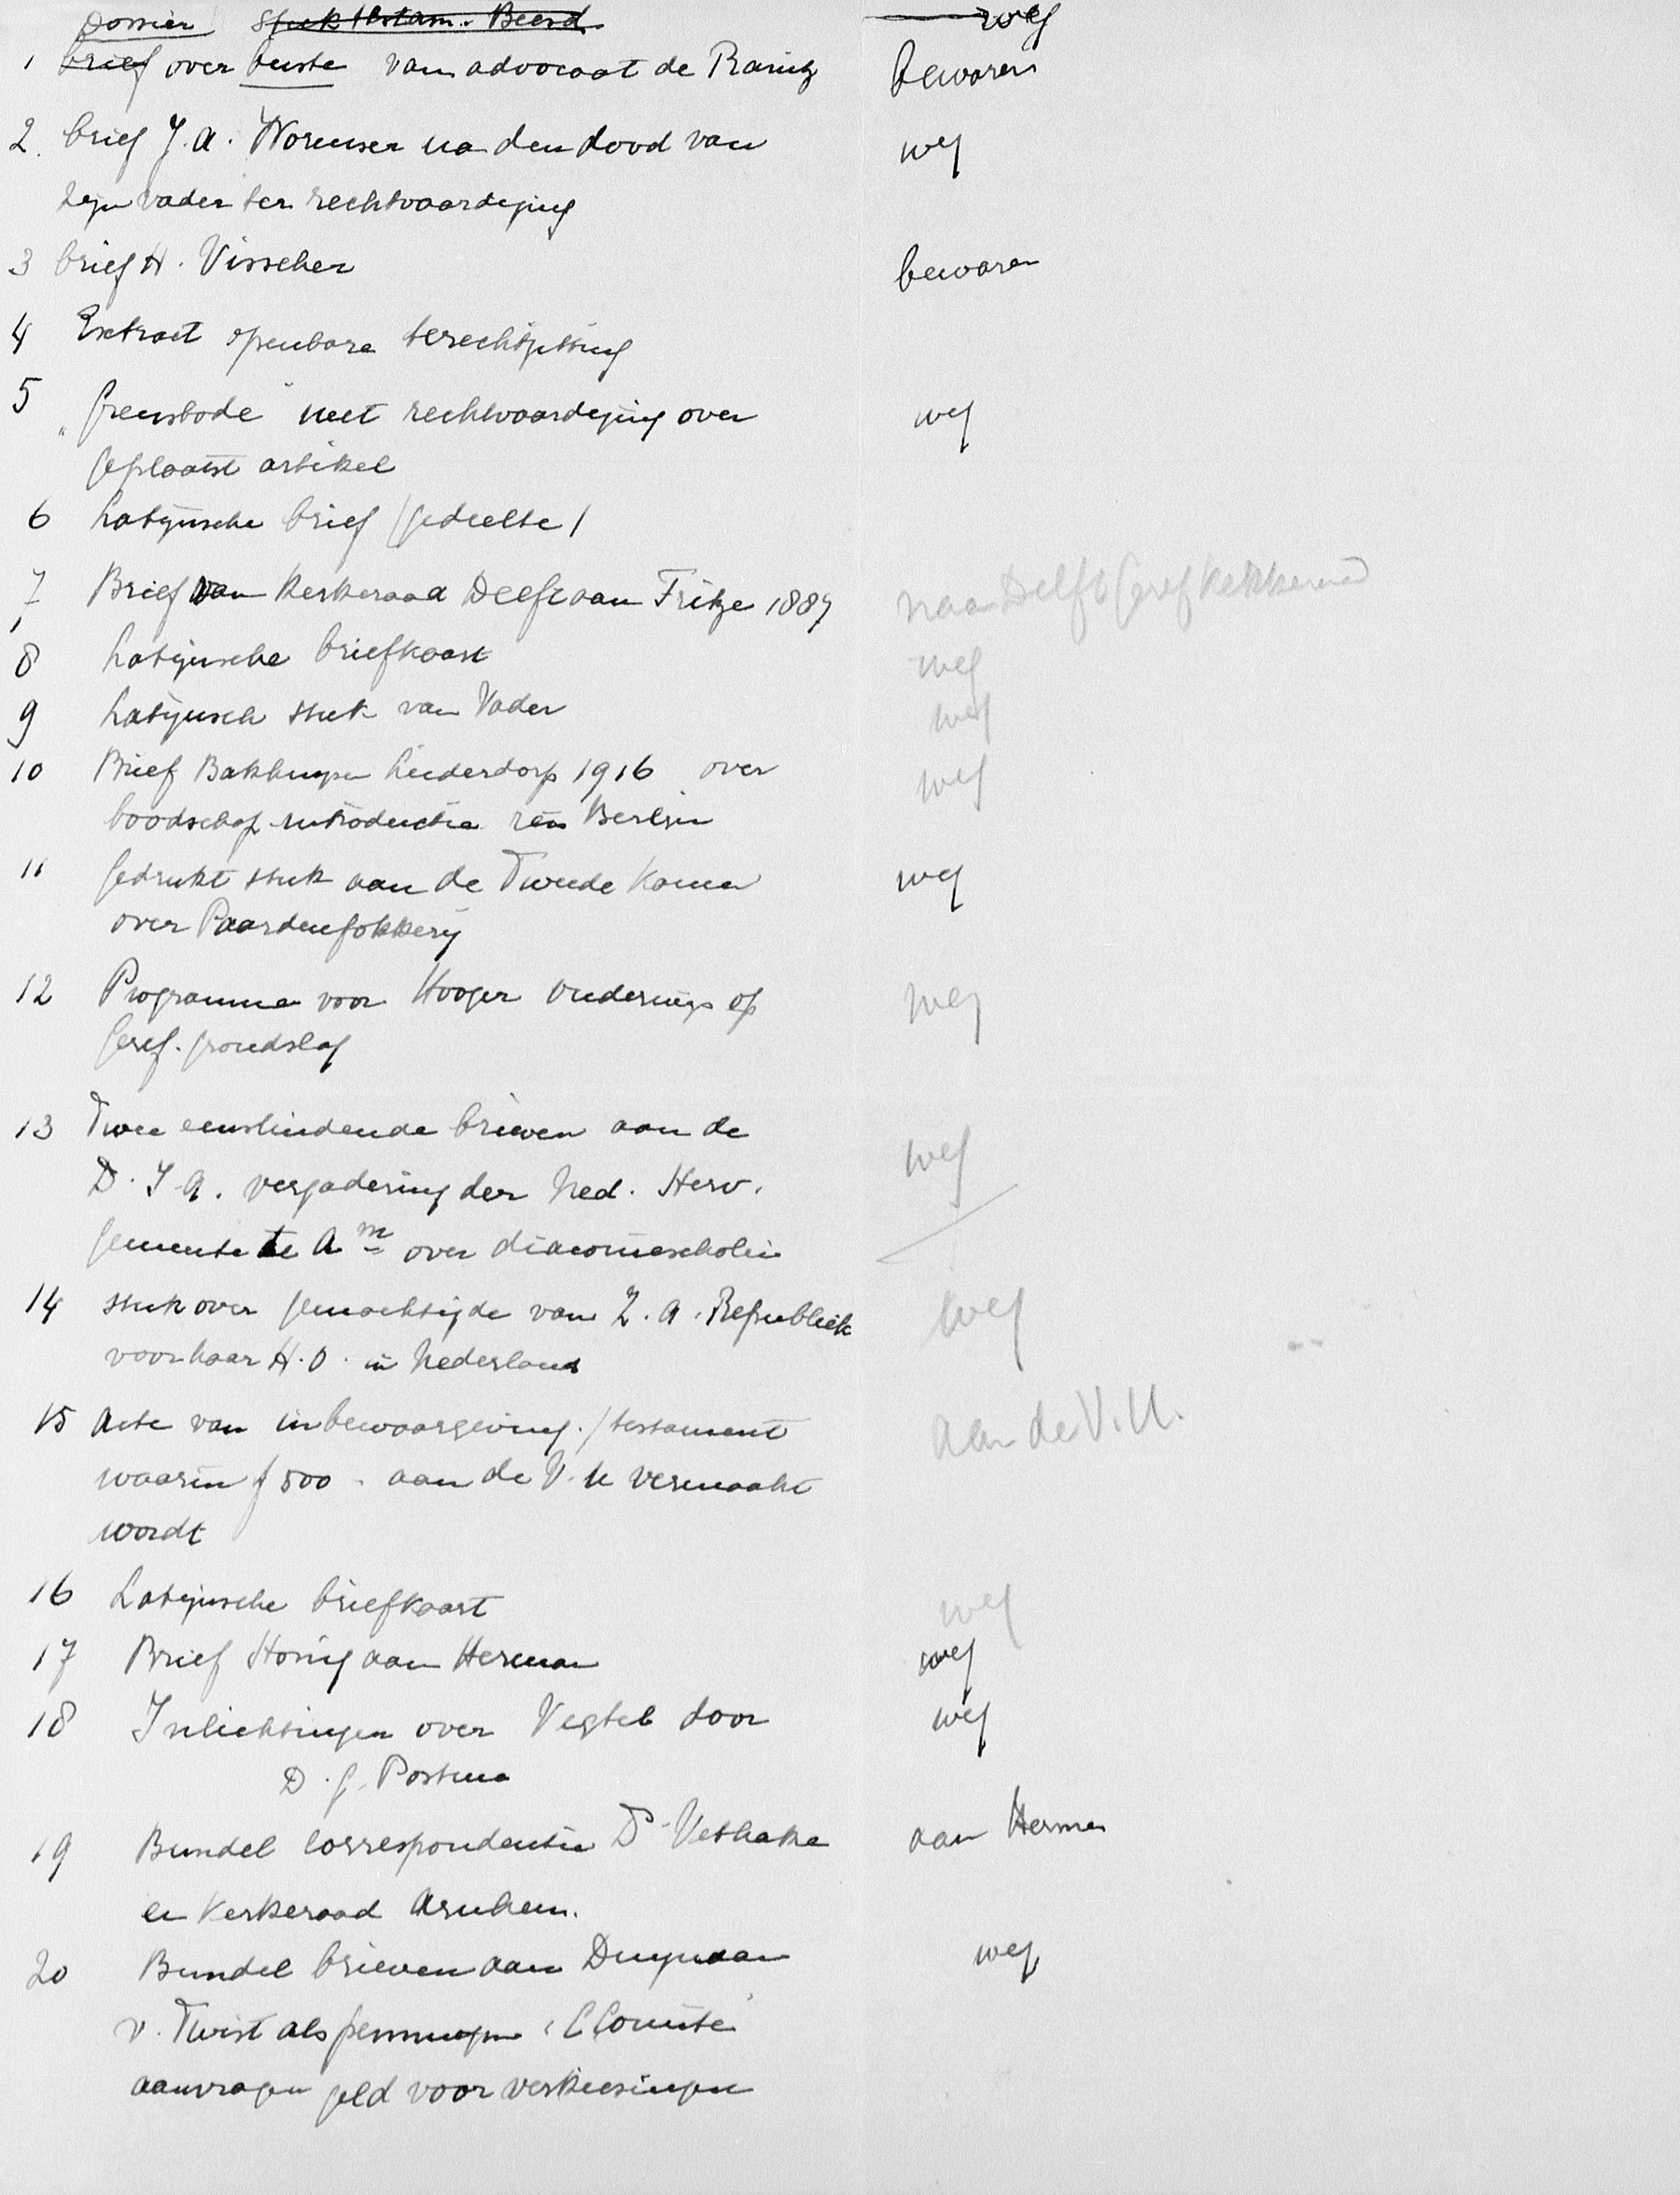 Dossier Stuk testam. Beerd weg
1 brief over buste van advocaat de Ranitz bewaren
2. brief J. A. Wormser na den dood van weg
zijn vader ter rechtvaardiging
3 brief H. Visscher bewaren
4 Extract openbare terechtzitting
5 „Grensbode" met rechtvaardiging over weg
geplaatst artikel
6 Latijnsche brief (gedeelte)
7 Brief van Kerkeraad Delft aan Fritze 1889 naar Delft Geref Kerkeraad
8 Latijnsche briefkaart weg
9 Latijnsch stuk van Vader weg
10 Brief Bakhuyzen Leiderdorp 1916 over weg
boodschap introductie reis Berlijn
11 Gedrukt stuk aan de Tweede Kamer weg
over Paardenfokkerij
12 Programma voor Hooger Onderwijs op weg
Geref. grondslag
13 Twee eensluidende brieven aan de weg
D. J. A. vergadering der Ned. Herv.
gemeente te Am over diaconiescholen
14 stuk over gemachtigde van Z. A. Republiek weg
voor haar H. O. in Nederland
15 Acte van inbewaargeving / testament aan de V. U.
waarin f 500 . aan de V. U vermaakt
wordt
16 Latijnsche briefkaart weg
17 Brief Honig aan Herman weg
18 Inlichtingen over Vegtel door weg
D. G. Postma
19 Bundel correspondentie Ds Vethake aan Herman
en Kerkeraad Arnhem.
20 Bundel brieven aan Duymaer weg
v. Twist als penningm. C Comité
aanvragen geld voor verkiezingen